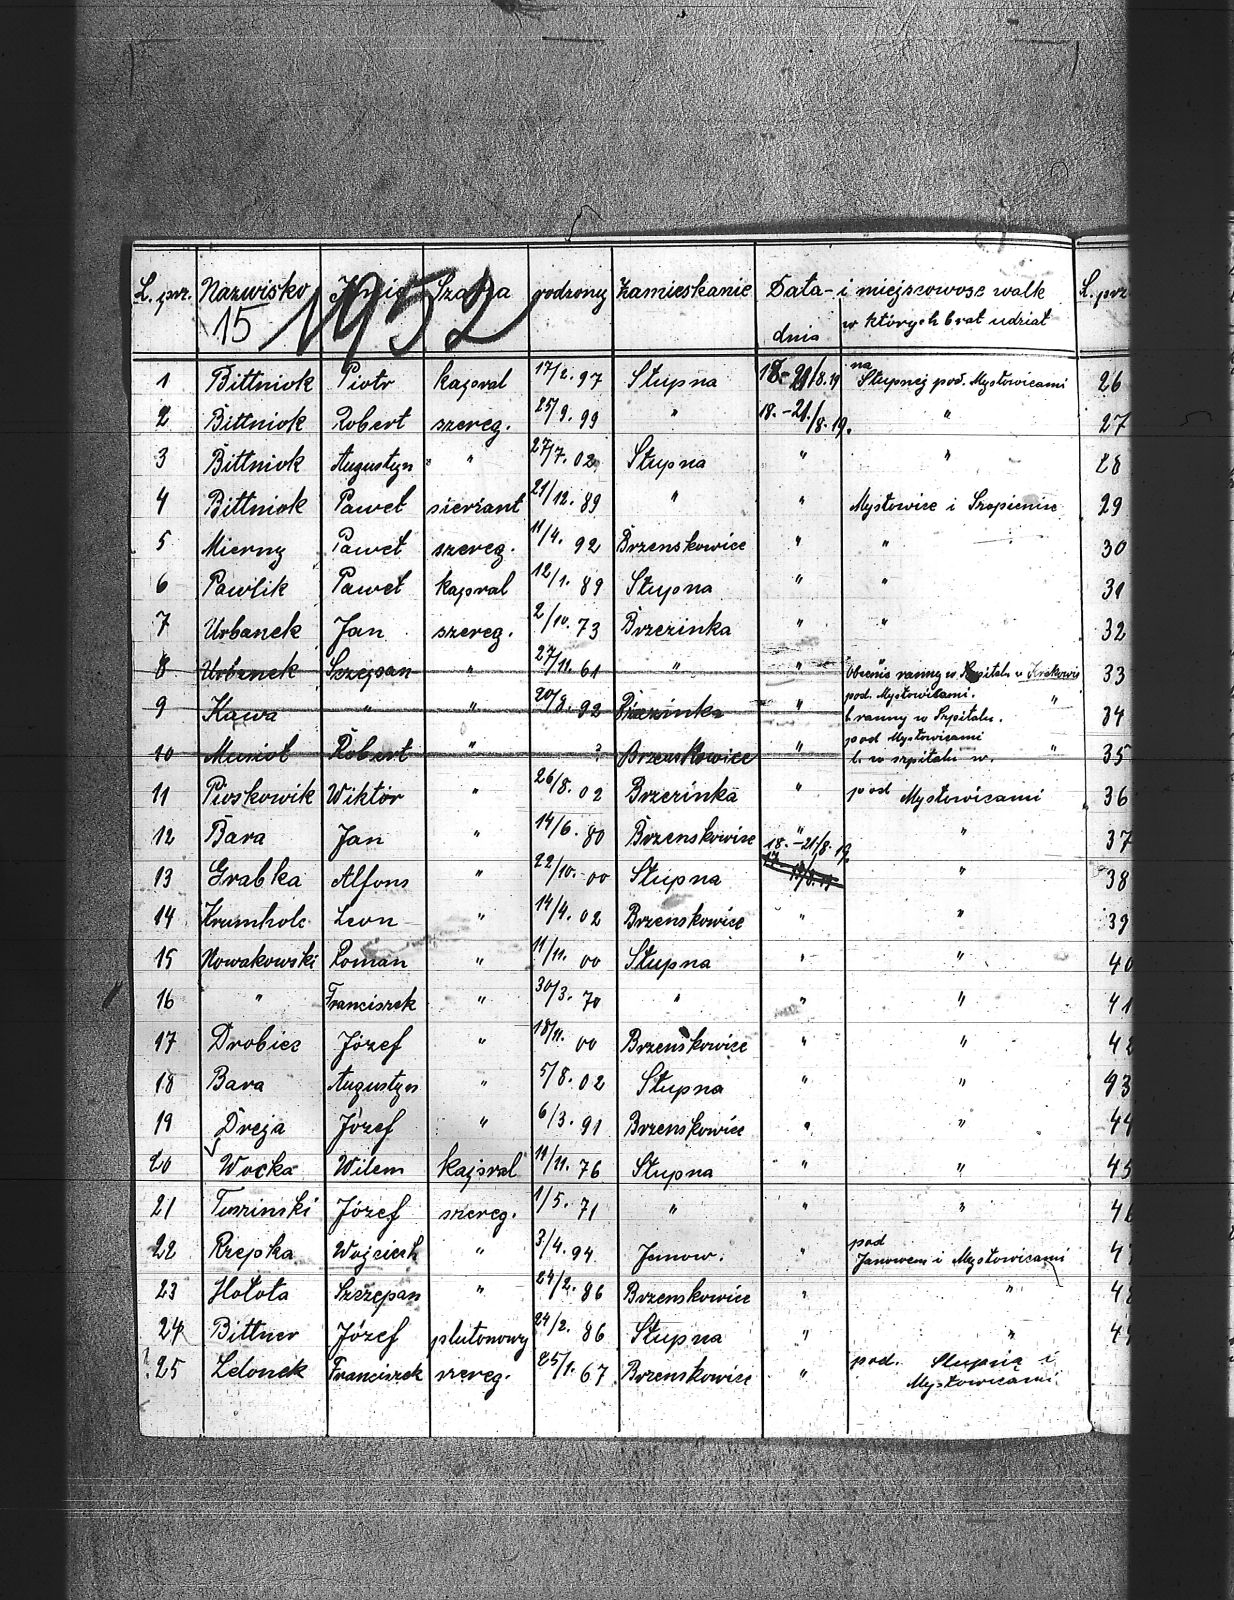 L. prz. Nazwisko Imię Szarża rodzony Zamieszkanie Data i miejscowość walk L. prz
15 1952 dnia w których brał udział
1 Bittniok Piotr kapral 17/2. 97 Słupna 18.-21/8.19 na Słupnej pod. Mysłowicami 26
2 Bittniok Robert szereg. 25/9. 99 " 18.-21./8.19. " 27
3 Bittniok Augustyn " 27/7. 02 Słupna " " 28
4 Bittniok Paweł sierżant 21/12. 89 " " Mysłowice i Szopienice 29
5 Mierny Paweł szereg. 11/4. 92 Brzenskowice " " 30
6 Pawlik Paweł kapral 12/1. 89 Słupna " " 31
7 Urbanek Jan szereg. 2/10. 73 Brzezinka " " 32
8 Urbanek Szczepan " 27/11. 61 " " Obecnie ranny w Szpitalu w Krakowie 33
pod. Mysłowicami.
9 Kawa " " 20/8. 92 Brzezinka " ranny w Szpitalu. " 34
pod Mysłowicami
10 Robert " ? Brzenskowice " w szpitalu w. " 35
11 Pioskowik Wiktor " 26/8. 02 Brzezinka " pod Mysłowicami 36
12 Bara Jan " 14/6. 80 Brzenskowice " " 37
18.-21/8.19.
13 Grabka Alfons " 22/10. 00 Słupna " 38
14 Krumholc Leon " 14/4. 02 Brzenskowice " " 39
15 Nowakowski Roman " 11/11. 00 Słupna " " 40
16 " Franciszek " 30/3. 70 " " " 41
17 Drobiec Józef " 18/11. 00 Brzenskowice " " 42
18 Bara Augustyn " 5/8. 02 Słupna " " 43
19 Dreja Józef " 6/3. 91 Brzenskowice " " 44
20 Wocka Wilem kapral 11/11. 76 Słupna " " 45
21 Tuszinski Józef szereg. 1/5. 71 " " " 46
22 Rzepka Wojciech " 3/4. 94 Janow. " pod Janowem i Mysłowicami 47
23 Hołota Szczepan " 24/2. 86 Brzenskowice " " 48
24 Bittner Józef plutonowy 24/2. 86 Słupna " " 49
25 Ledonek Franciszek szereg. 25/1. 67 Brzenskowice " pod. Słupną i
Mysłowicami